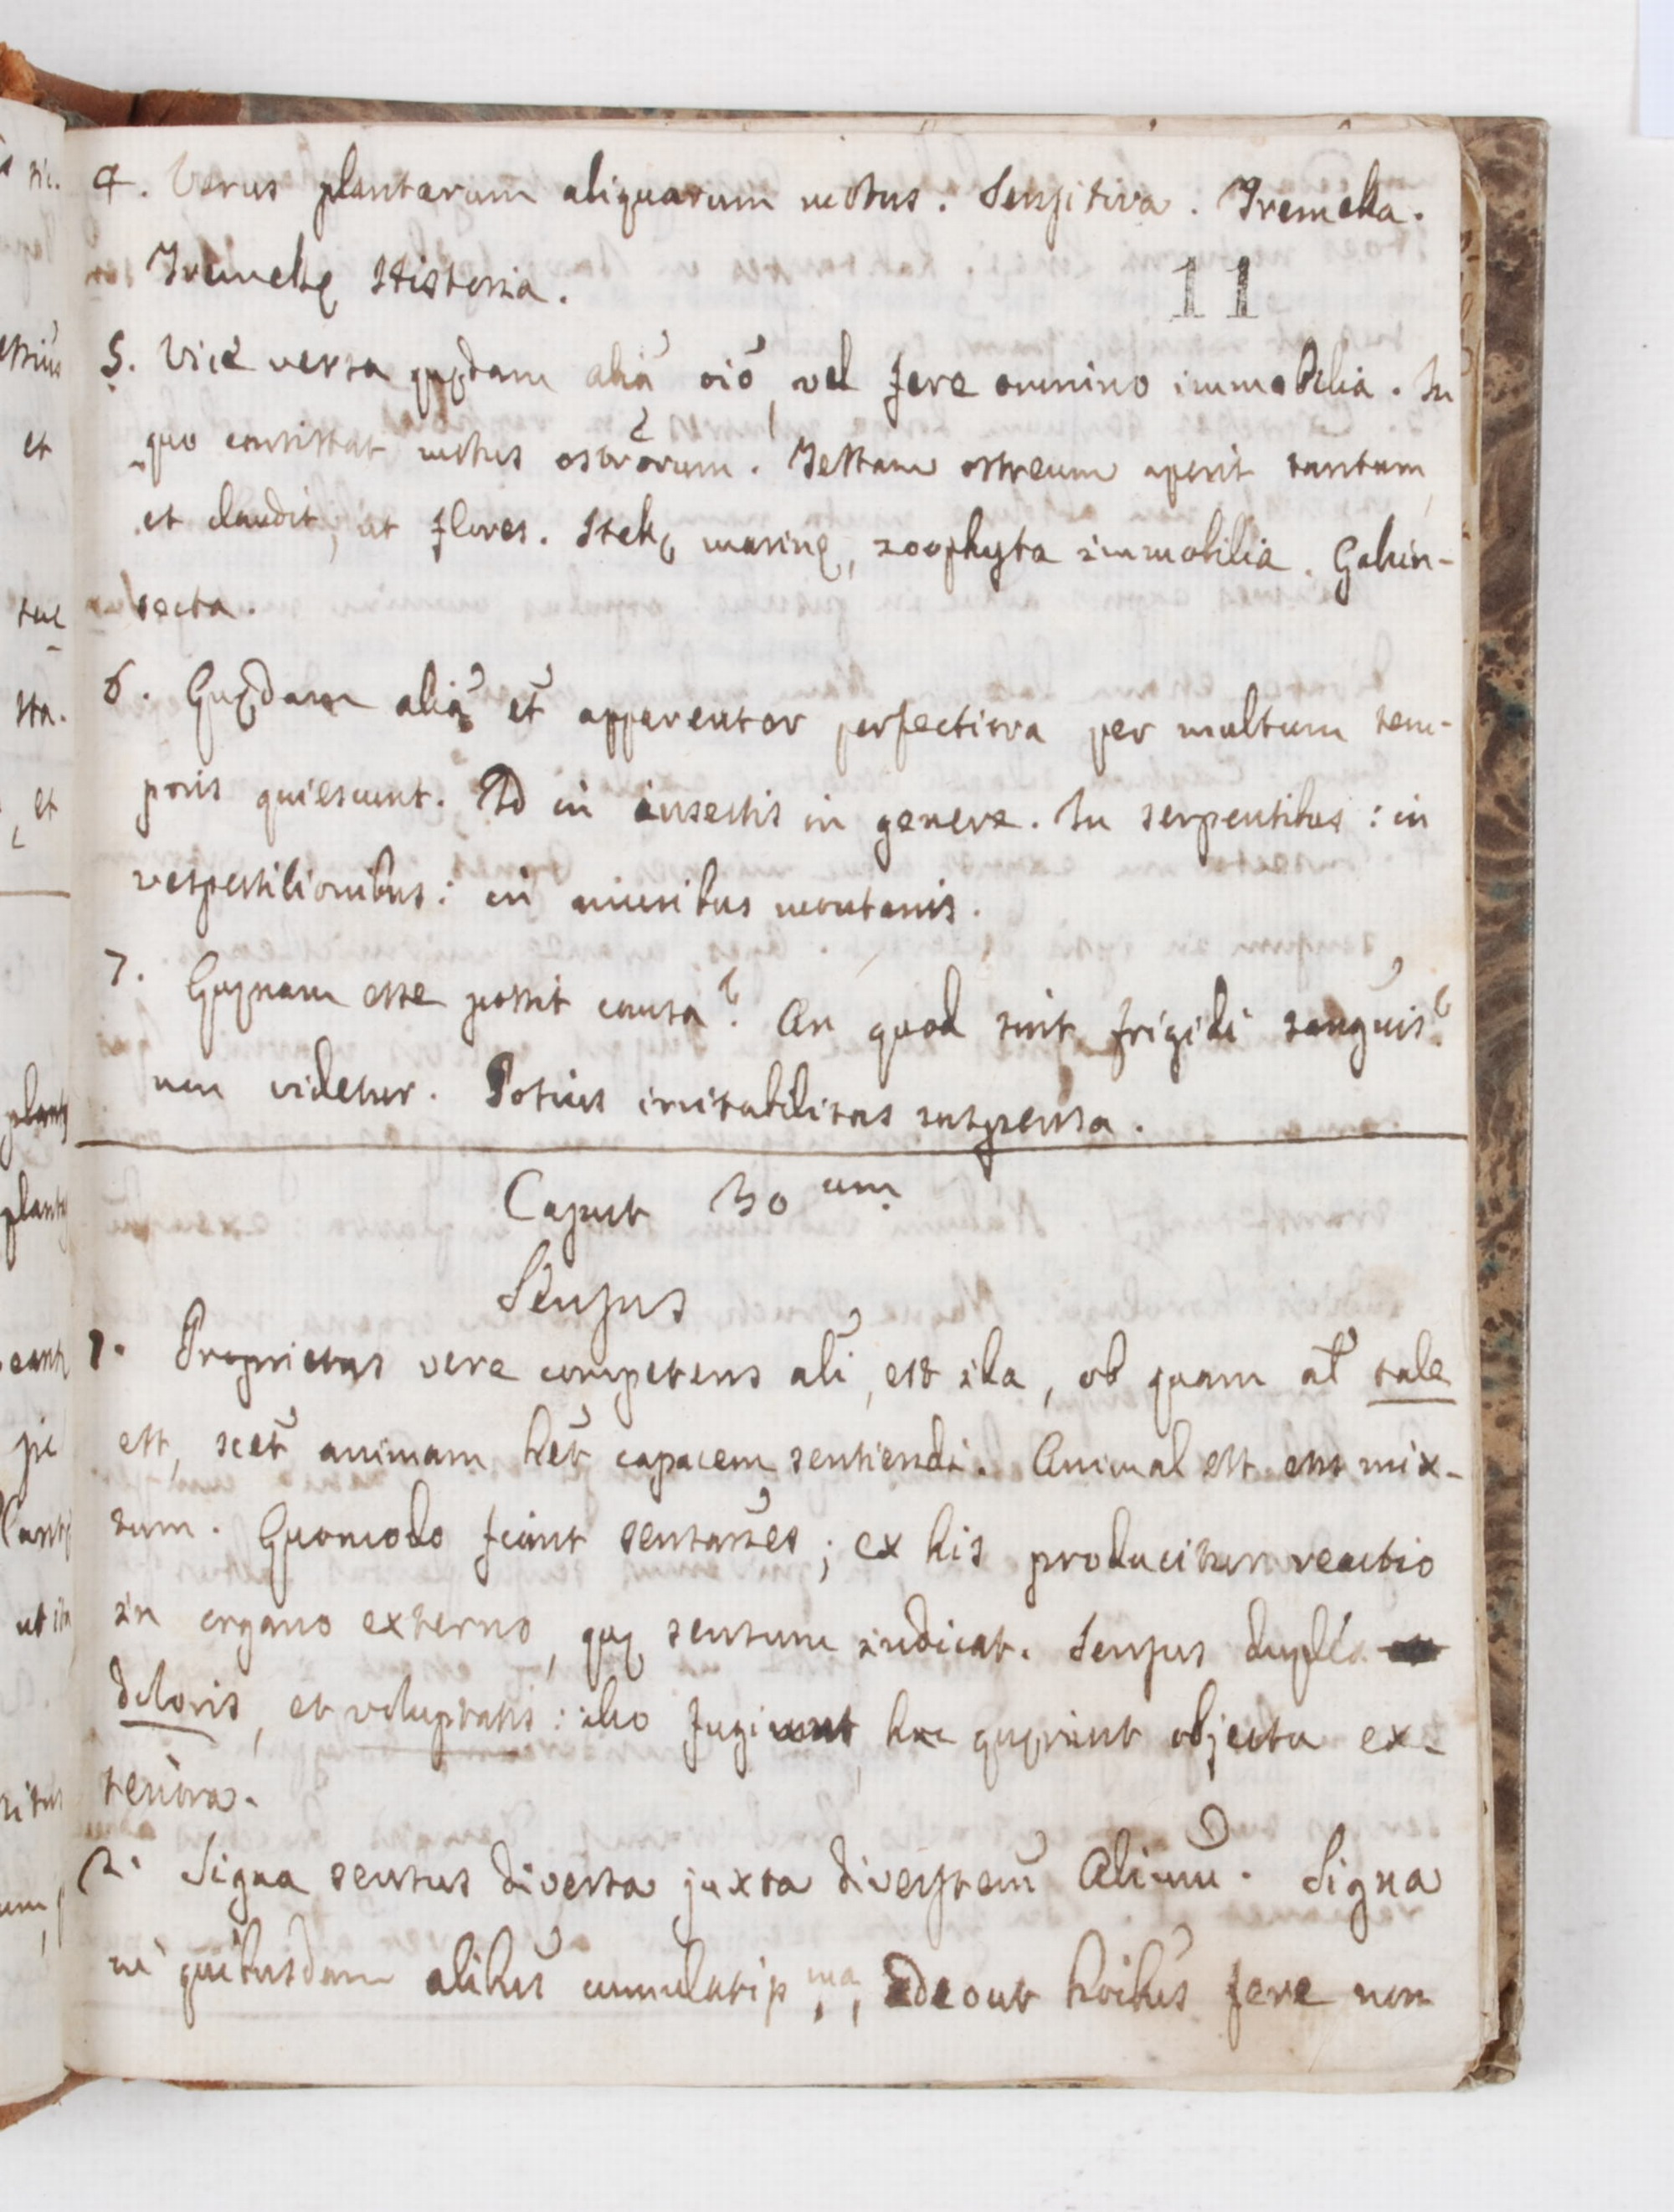 4. Verus plantarum aliquarum motus. Sensitiva. Tremella.
Tremellę Historia.
11
5. Vice versa quędam alia oio vel fere omnino immobilia. In
quo consistat motus ostrorum. Testam ostreum aperit tantum,
et claudit, ut flores. Stellę marinę, zoophyta immobilia. Galin-
secta.
6. Quędam alia et apparenter perfectiora per multum tem-
poris quiescunt. Id in insectis in genere. In serpentibus: in
vespertilionibus: in muribus montanis.
7. Quęnam esse possit causa? An quod sint frigidi sanguis?
non videtur. Potius irritabilitas suspensa.
Caput 30um.
Sensus
1. Proprietas vere competens ali, est illa, ob quam al tale
est, scet animam het capacem sentiendi. Animal est ens mix-
tum. Quomodo fiunt sensanes; ex his producitur reactio
in organo externo, quę sensum indicat. Sensus duplex
doloris, et voluptatis: illo fugiunt, hoc quęrunt objecta ex-
teriora.
2. Signa sensus diversa juxta diversitem Alium. Signa
in quibusdam alibus cumulatissma, adeout hoibus fere non